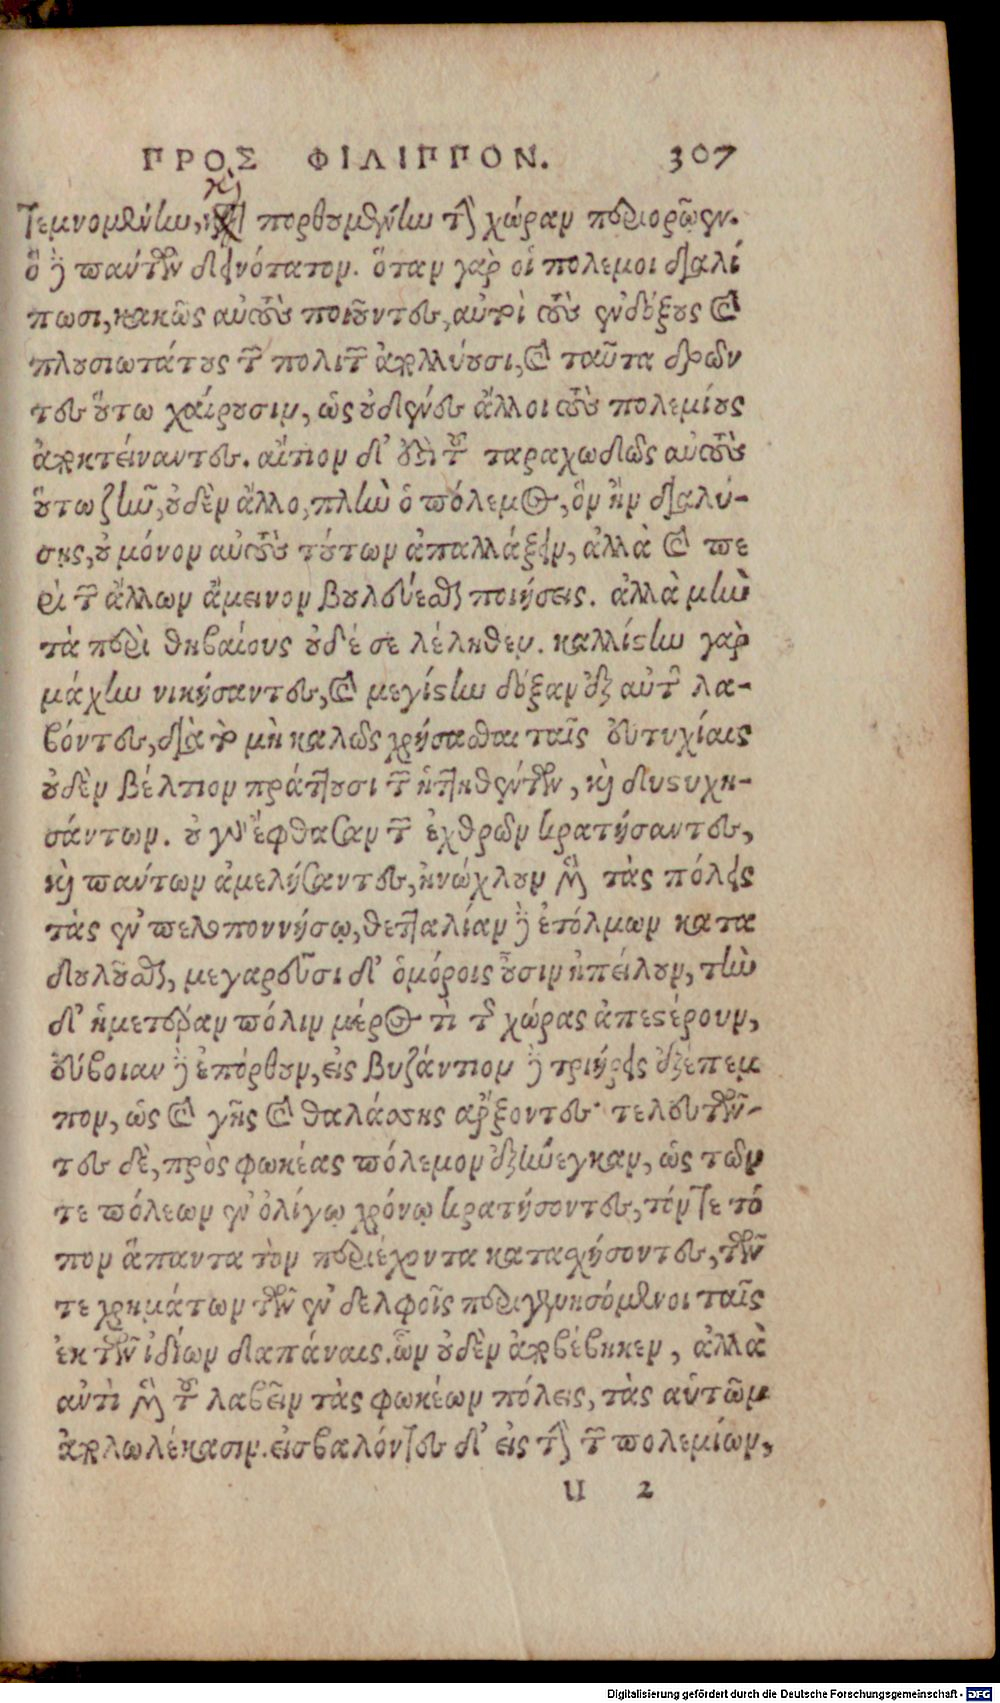 ΠΡΟΣ ΦΙΛΙΠΠΟΝ. 307
τεμνομένην, καὶ πορθουμένην τὴν χώραν περιορῶσιν.
ὃ δὲ πάντων δεινότατον. ὅταν γὰρ οἱ πολέμοι διαλί
πωσι, κακῶς αὐτοὺς ποιοῦντες, αὐτοὶ τοὺς ἐνδόξους καὶ
πλουσιωτάτους τῶν πολιτῶν ἀπολλύουσι, καὶ ταῦτα δρῶν
τες οὕτω χαίρουσιν, ὡς οὐδένες ἄλλοι τοὺς πολεμίους
ἀποκτείναντες. αἴτιον δ' ἐστὶ τοῦ ταραχωδῶς αὐτοὺς
οὕτω ζῆν, οὐδὲν ἄλλο, πλὴν ὁ πόλεμος, ὃν ἢν διαλύ-
σῃς, οὐ μόνον αὐτοὺς τούτων ἀπαλλάξειν, ἀλλὰ καὶ πε
ρὶ τῶν ἄλλων ἄμεινον βουλεύεσθαι ποιήσεις. ἀλλὰ μὴν
τὰ περὶ θηβαίους οὐδέ σε λέληθεν. καλλίστην γὰρ
μάχην νικήσαντες, καὶ μεγίστην δόξαν ἐξ αὐτῆς λα-
βόντες, διὰ τὸ μὴ καλῶς χρήσασθαι ταῖς εὐτυχίαις
οὐδὲν βέλτιον πράττουσι τῶν ἡττηθέντων, καὶ δυστυχη-
σάντων. οὐ γὰρ ἔφθασαν τῶν ἐχθρῶν κρατήσαντες,
καὶ πάντων ἀμελήσαντες, ἠνώχλουν μὲν τὰς πόλεις
τὰς ἐν πελοποννήσῳ, θετταλίαν δὲ ἐτόλμων κατα
δουλοῦσθαι, μεγαρεῦσι δ' ὁμόροις οὖσιν ἠπείλουν, τὴν
δ' ἡμετέραν πόλιν μέρος τι τῆς χώρας ἀπεστέρουν,
εὔβοιαν δὲ ἐπόρθουν, εἰς βυζάντιον δὲ τριήρεις ἐξέπεμ
πον, ὡς καὶ γῆς καὶ θαλάσσης ἄρξοντες· τελευτῶν-
τες δὲ, πρὸς φωκέας πόλεμον ἐξήνεγκαν, ὡς τῶν
τε πόλεων ἐν ὀλίγῳ χρόνῳ κρατήσοντες, τόν τε τό
πον ἅπαντα τὸν περιέχοντα κατασχήσοντες, τῶν
τε χρημάτων τῶν ἐν δελφοῖς περιγενησόμενοι ταῖς
ἐκ τῶν ἰδίων δαπάναις. ὧν οὐδὲν ἀποβέβηκεν, ἀλλὰ
ἀντὶ μὲν τοῦ λαβεῖν τὰς φωκέων πόλεις, τὰς αὑτῶν
ἀπολωλέκασιν. εἰσβαλόντες δ' εἰς τὴν τῶν πολεμίων,
u 2
Digitalisierung gefördert durch die Deutsche Forschungsgemeinschaft - DFG